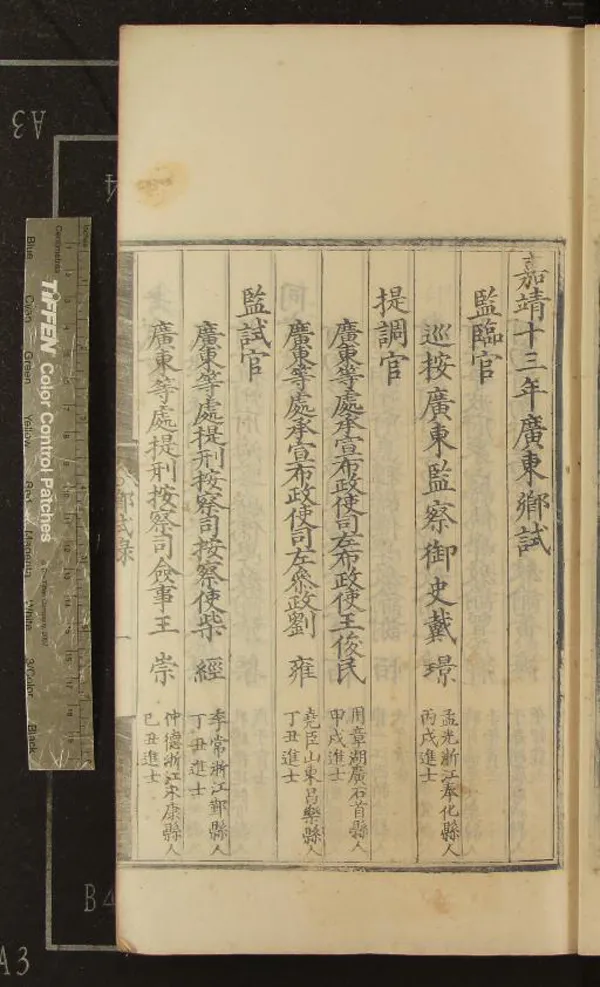 嘉靖十三年廣東鄉試
監臨官
巡按廣東監察御史戴 璟
孟光浙江奉化縣人
丙戌進士
提調官
廣東等處承宣布政使司左布政使王俊民
用章湖廣石首縣人
甲戌進士
廣東等處承宣布政使司左叅政劉 雍
堯臣山東昌樂縣人
丁丑進士
監試官
廣東等處提刑按察司按察使柴 經
季常浙江鄞縣人
丁丑進士
廣東等處提刑按察司僉事王 崇
仲德浙江永康縣人
己丑進士
鄉試錄
一
TIFFEN Color Control Patches
Centimetres
Inches
Blue
Cyan
Green
Yellow
Red
Magenta
White
3/Color
Black
A3
4
B4
A3